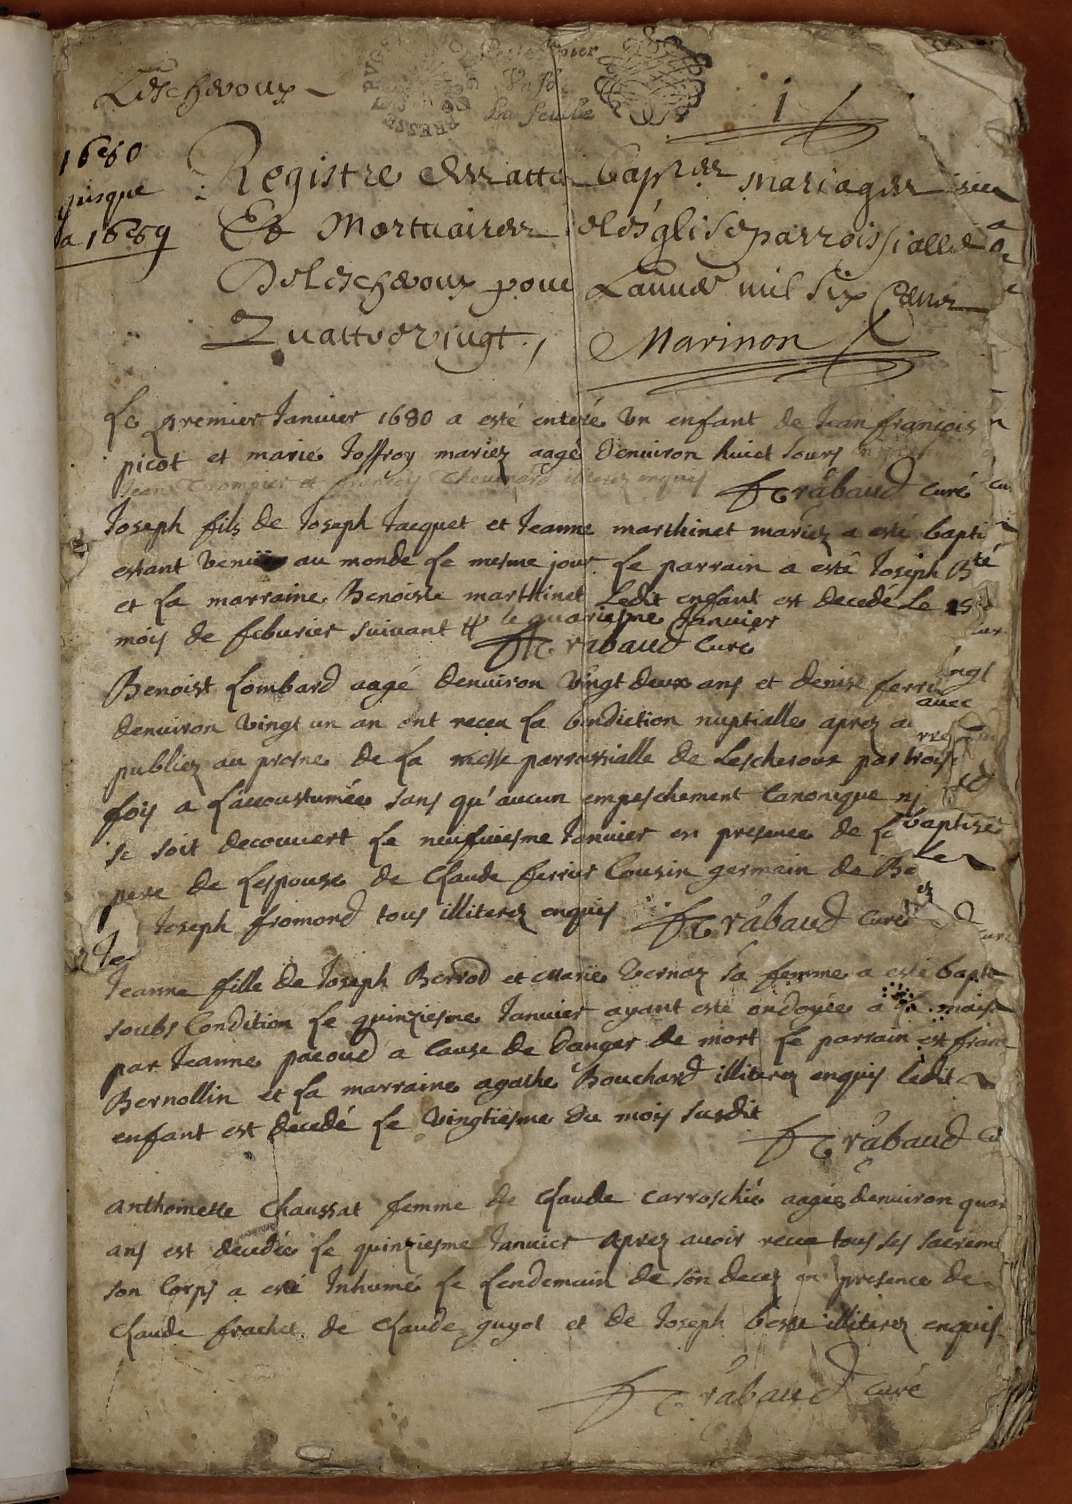 Leschevoux
1
1680
jusque
a 1689
Registre des actes baptes mariages
Et Mortuaires de leglise parroissialle
De Leschevoux pour Lannee mil six Cens
Quattrevingt, Marinon
Le premier Januier 1680 a esté enteré un enfant de Jean françois
picot et marie Joffroy mariez aagé denuiron huict Jours
Jean Trompier et francois Chevenard illiterez enquis
Trabaud curé
Joseph fils de Joseph Jacquet et Jeanne marthinet mariez a esté bapti
estant venu au monde le mesme jour. le parrain a esté Joseph
et la marraine Benoiste marthinet Ledit enfant est decedé le 15
mois de feburier suivant # le quatriesme Januier
Trabaud curé
Benoist Lombard aagé denuiron vingt deux ans et denise ferri
denuiron vingt un an ont receu la bndiction nuptialle aprez a
publiez au prosne de la messe parroissialle de Lescheroux par trois
fois a laccoustumée sans qu'aucun empeschement Canonique
se soit decouvert le neufuiesme Januier en presence de
pere de lespouse de Claude ferrier Cousin germain de Be
Joseph fromond tous illiterez enquis Trabaud curé
Je
Jeanne fille de Joseph Berrod et Marie Vernaz sa femme a esté bapti
soubs Condition le quinziesme Januier ayant esté ondoyée a la mais
par Jeanne pacoud a Cause de danger de mort le parrain est franc
Bernollin et la marraine agathe Bouchard illiterez enquis ledit
enfant est decedé le vingtiesme du mois susdit
Trabaud
anthoinette Chaussat femme de Claude Carroschié aagée denuiron quar
ans est decedée le quinziesme Januier aprez auoir receu tous ses sacrem
son Corps a esté Inhumé le lendemain de son decez en presence de
Claude frachet de Claude guyot et de Joseph besse illiterez enquis
Trabaud curé